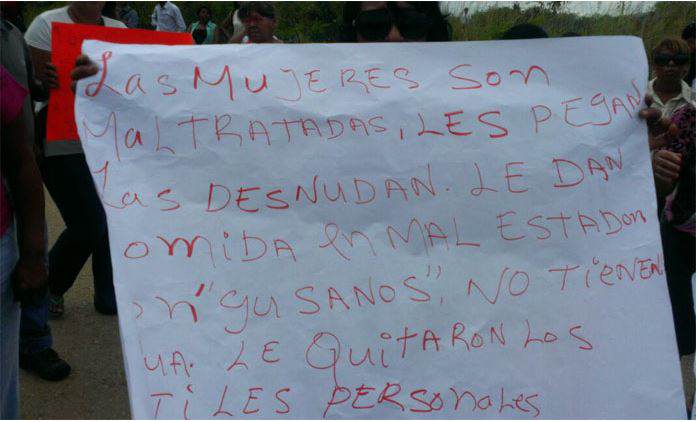 Las MUJERES SON
MALTRATADAS, LES PEGAN
Las DESNUDAN. LE DAN
omiDA EN MAL ESTADO
n "gUSANOS", NO TiENEN
UA. LE QUiTARON LOS
TiLES PERSONALES